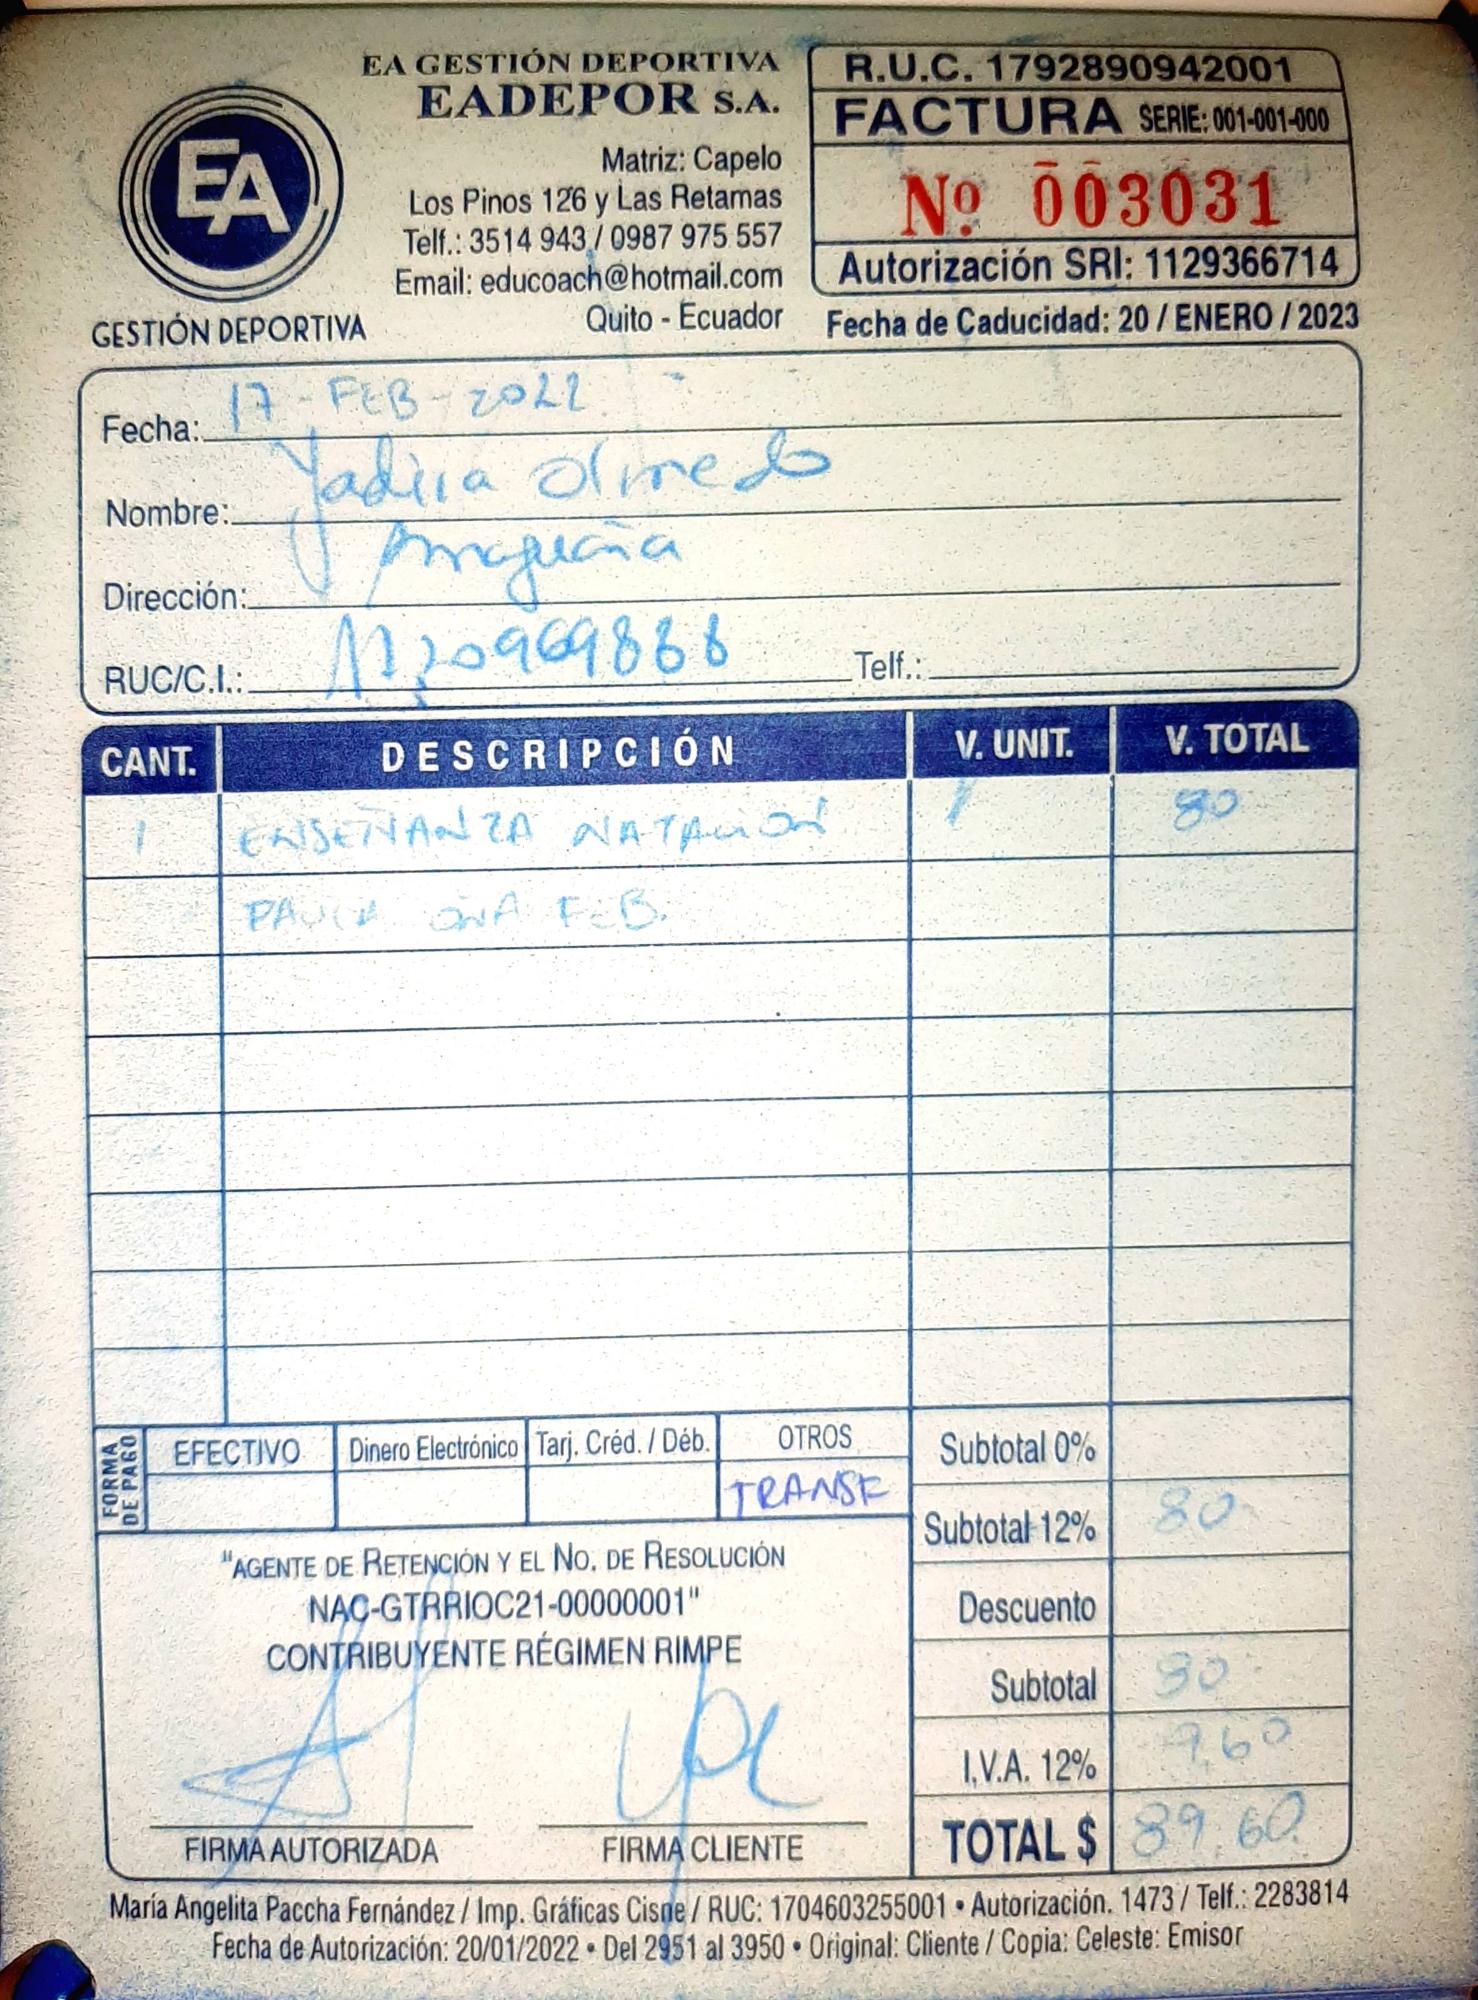 EA GESTIÓN DEPORTIVA
EADEPOR S.A.
Matriz: Capelo
Los Pinos 126 y Las Retamas
Telf.: 3514 943 / 0987 975 557
Email: educoach@hotmail.com
Quito - Ecuador
EA
GESTIÓN DEPORTIVA
R.U.C. 1792890942001
FACTURA SERIE: 001-001-000
Nº 003031
Autorización SRI: 1129366714
Fecha de Caducidad: 20 / ENERO / 2023
Fecha: 17-FEB-2022
Nombre: Yadira Olmedo
Dirección: Amaguaña
RUC/C.I.: Telf.:
CANT. DESCRIPCIÓN V. UNIT. V. TOTAL
1 ENSEÑANZA NATACIÓN / 80
OÑA FEB.
FORMA DE PAGO
EFECTIVO Dinero Electrónico Tarj. Créd. / Déb. OTROS
TRANSF
Subtotal 0%
Subtotal 12% 80
Descuento
Subtotal 80
I.V.A. 12% 9.60
TOTAL $ 89.60
"AGENTE DE RETENCIÓN Y EL NO. DE RESOLUCIÓN
NAC-GTRRIOC21-00000001"
CONTRIBUYENTE RÉGIMEN RIMPE
FIRMA AUTORIZADA FIRMA CLIENTE
María Angelita Paccha Fernández / Imp. Gráficas Cisne / RUC: 1704603255001 • Autorización. 1473 / Telf.: 2283814
Fecha de Autorización: 20/01/2022 • Del 2951 al 3950 • Original: Cliente / Copia: Celeste: Emisor